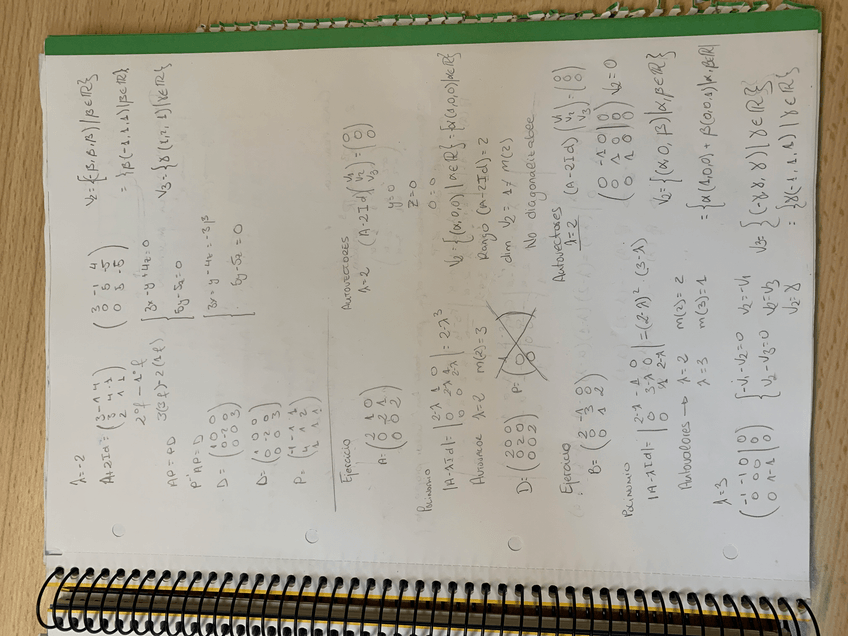 λ=-2
A+2Id = ( 3 -1 4
3 4 -1
2 1 1 )
( 3 -1 4
0 5 -5
0 3 -5 )
V₂={(β,β,β) | β∈ℝ}
= {β(-1,1,1) | β∈ℝ}
2ªf - 1ªf
3(3f)-2(1f)
{ 3x-y+4z=0
5y-5z=0
V₃={γ(1,2,1) | γ∈ℝ}
{ 3x=y-4z=-3β
5y-5z=0
AP=PD
P⁻¹AP=D
D= ( 1 0 0
0 -2 0
0 0 3 )
D= ( 1 0 0
0 -2 0
0 0 3 )
P= ( -1 -1 1
4 1 2
1 1 1 )
Ejercicio
A= ( 2 1 0
0 2 1
0 0 2 )
Polinomio
|A-λId| = | 2-λ 1 0
0 2-λ 1
0 0 2-λ | = 2-λ³
Autovalor λ=2 m(2)=3
D= ( 2 0 0
0 2 0
0 0 2 )
Autovectores
λ=2 (A-2Id) (v₁ v₂ v₃) = (0 0 0)
y=0
z=0
0=0
V₂={(α,0,0) | α∈ℝ} = {α(1,0,0) | α∈ℝ}
Rango (A-2Id) = 2
dim V₂ = 1 ≠ m(2)
No diagonalizable
Ejercicio
B= ( 2 -1 0
0 3 0
0 1 2 )
Polinomio
|A-λId| = | 2-λ -1 0
0 3-λ 0
0 1 2-λ | = (2-λ)² · (3-λ)
Autovalores → λ=2 m(2)=2
λ=3 m(3)=1
Autovectores
λ=2 (A-2Id) (v₁ v₂ v₃) = (0 0 0)
( 0 -1 0 | 0
0 1 0 | 0
0 1 0 | 0 ) v₂=0
V₂={(α,0,β) | α,β∈ℝ}
= {α(1,0,0) + β(0,0,1) | α,β∈ℝ}
λ=3
( -1 -1 0 | 0
0 0 0 | 0
0 1 -1 | 0 )
{ -v₁-v₂=0 v₂=-v₁
v₂-v₃=0 v₂=v₃
v₂=γ
V₃={(-γ,γ,γ) | γ∈ℝ}
= {γ(-1,1,1) | γ∈ℝ}